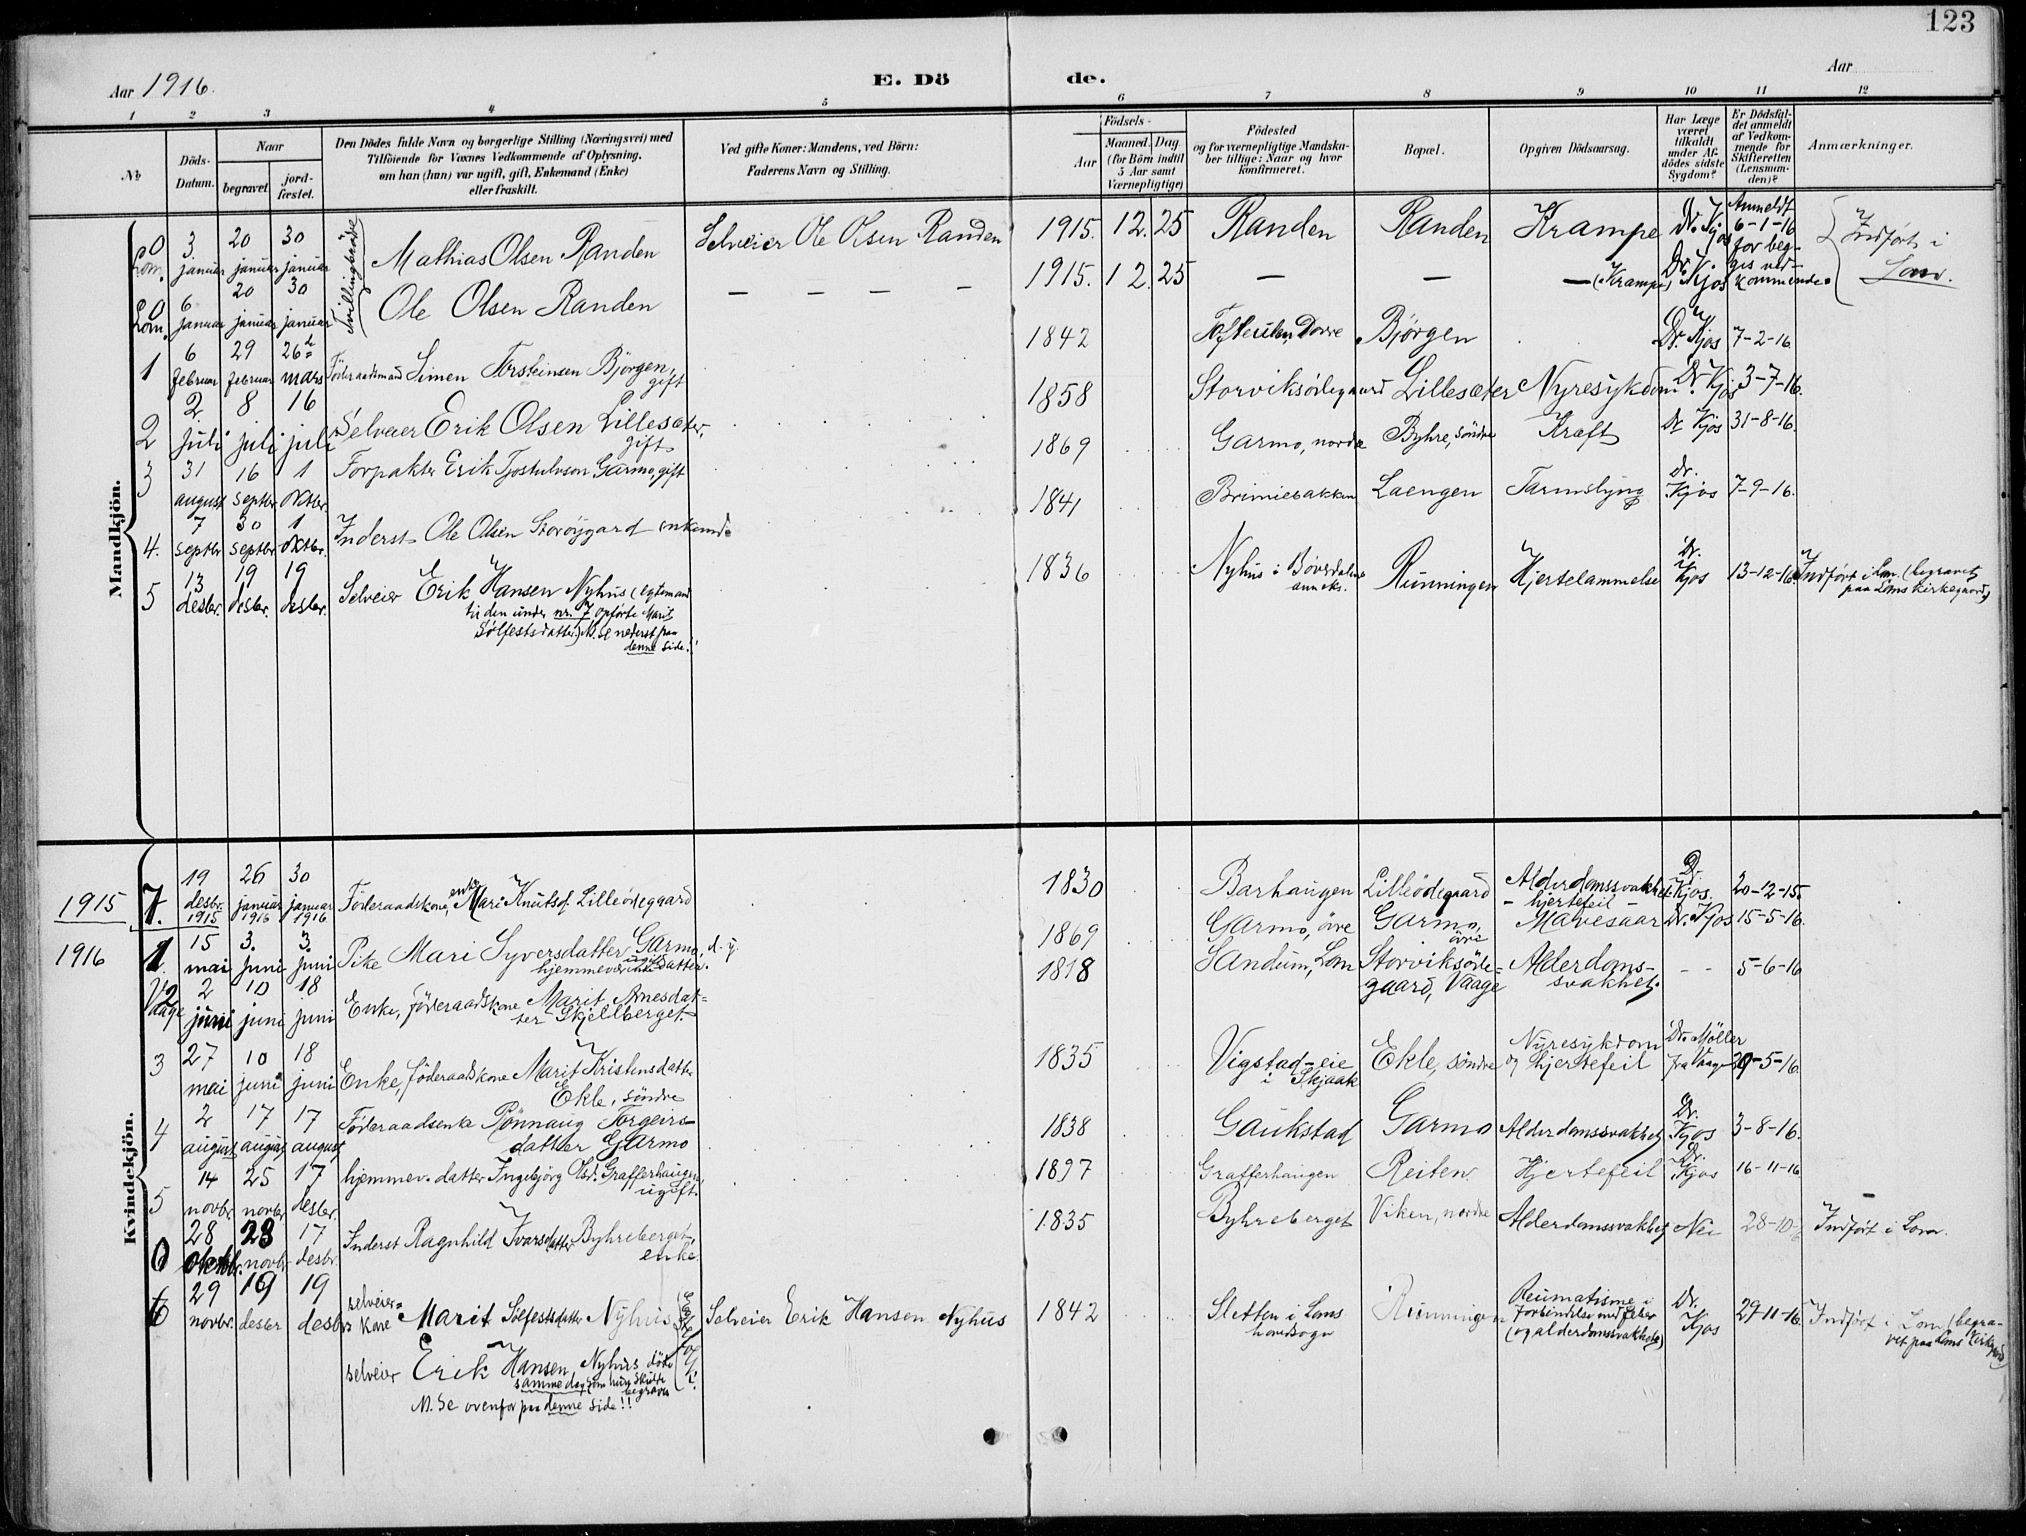 123
Aar 1916.
E. Dö
de.
Aar
1 2 3 4 5 6 7 8 9 10 11 12
No
Döds-
Datum.
Naar
begravet
jord-
fæstet.
Den Dödes fulde Navn og borgerlige Stilling (Næringsvei) med
Tilföiende for Voxnes Vedkommende af Oplysning,
om han (hun) var ugift, gift, Enkemand (Enke)
eller fraskilt.
Ved gifte Koner: Mandens, ved Börn:
Faderens Navn og Stilling.
Födsels-
Aar
Maaned. Dag
(for Börn indtil
5 Aar samt
Værnepligtige)
Födested
og for værnepligtige Mandska-
ber tillige: Naar og hvor
konfirmeret.
Bopæl.
Opgiven Dödsaarsag.
Har Læge
været
tilkaldt
under Af-
dödes sidste
Sygdom?
Er Dödsfal-
det anmeldt
af Vedkom-
mende for
Skifteretten
(Lensman-
den)?
Anmærkninger.
Mandkjön.
0 Lom. 3 januar 20 januar 30 januar Tvillingbrødre Mathias Olsen Randen Selveier Ole Olsen Randen 1915. 12. 25 Randen Randen Krampe Dr. Kjos Anmeldt 6-1-16 for beg- Indført i Lom.
0 Lom. 6 januar 20 januar 30 januar Ole Olsen Randen — — — — 1915. 12. 25 — — — (Krampe) Dr. Kjos ges ved- kommende.
1 6 februar 29 februar 26 mars Föderaadsmand Simen Torsteinsen Bjørgen, gift 1842 Dovre Bjørgen Dr. Kjos 7-2-16.
2 2 juli 8 juli 16 juli Selveier Erik Olsen Lillesæter, gift 1858 Storviksødegaard Lillesæter Nyresykdom Dr. Kjos 3-7-16.
3 31 august 16 septbr. 1 oktbr. Forpakter Erik Tjostulvson Garmo, gift 1869 Garmo, nordre Byhre, søndre Kræft Dr Kjos 31-8-16.
4. 7 septbr 30 septbr 1 oktbr. Inderst Ole Olsen Storøygard enkemd. 1841 Brimiebakken Laengen Tarmslyng Dr. Kjos 7-9-16.
5 13 desbr. 19 desbr. 19 desbr. Selveier Erik Hansen Nyhus (egtemand
til den under nr. 7 opførte Marit
Solfestsdatter.) N. se nederst paa
denne side!! 1836 Nyhus i Bøverdalens anneks. Runningen Hjertelammelse Dr. Kjos 13-12-16. Indført i Lom. (begravet
paa Loms kirkegaard)
Kvindekjön.
1915 7. 19 desbr. 1915 26 januar 1916 30 januar 1916 Föderaadskone, enke Mari Knutsd. Lilleødegaard 1830 Barhaugen Lilleødegaard Alderdomssvakhet
- hjertefeil - Dr. Kjos. 20-12-15.
1916 1. 15 mai 3. juni 3. juni Pike Mari Syversdatter Garmo, d. y.
ugift
hjemmeværende datter. 1869 Garmo, övre Garmo, övre Mavesaar Dr. Kjos 15-5-16.
2 Vaage 2 juni 10 juni 18 juni Enke, föderaadskone Marit Arnesdat-
ter Skjellberget. 1818 Sandum, Lom Storviksøde-
gaard, Vaage Alderdoms-
svakhet. - - 5-6-16
3 27 mai 10 juni 18 juni Enke, föderaadskone Marit Kristensdatter
Ekle, søndre 1835 Vigstad-eie
i Skjaak Ekle, søndre Nyresykdom
og hjertefeil Dr. Møller
fra Vaage 29-5-16.
4 2 august 17 august 17 august Föderaadsenke Rønnaug Torgeirs-
datter Garmo 1838 Gaukstad Garmo Alderdomssvakhet Dr. Kjos 3-8-16.
5 14 novbr. 25 novbr. 17 desbr. hjemmev. datter Ingebjørg Olsd. Grafferhaugen,
ugift. 1897 Grafferhaugen Reiten Hjertefeil Dr. Kjos 16-11-16
0 28 oktbr. 23 novbr. 17 desbr. Inderst Ragnhild Ivarsdatter Byhreberget,
enke. 1835 Byhreberget Viken, nordre Alderdomssvakhet Nei 28-10- Indført i Lom.
6 29 novbr. 19 desbr 19 desbr selveier-
kone Marit Solfestsdatter Nyhus Selveier Erik Hansen Nyhus 1842 Sletten i Loms
hovedsogn Runningen Reumatisme i
forbindelse med feber
(og alderdomssvakhet) Dr. Kjos 29-11-16. Indført i Lom (begra-
vet paa Loms kirkegaard)
selveier Erik Hansen, Nyhus döde
samme dag som hun skulde
begraves
N. Se ovenfor paa denne side!!